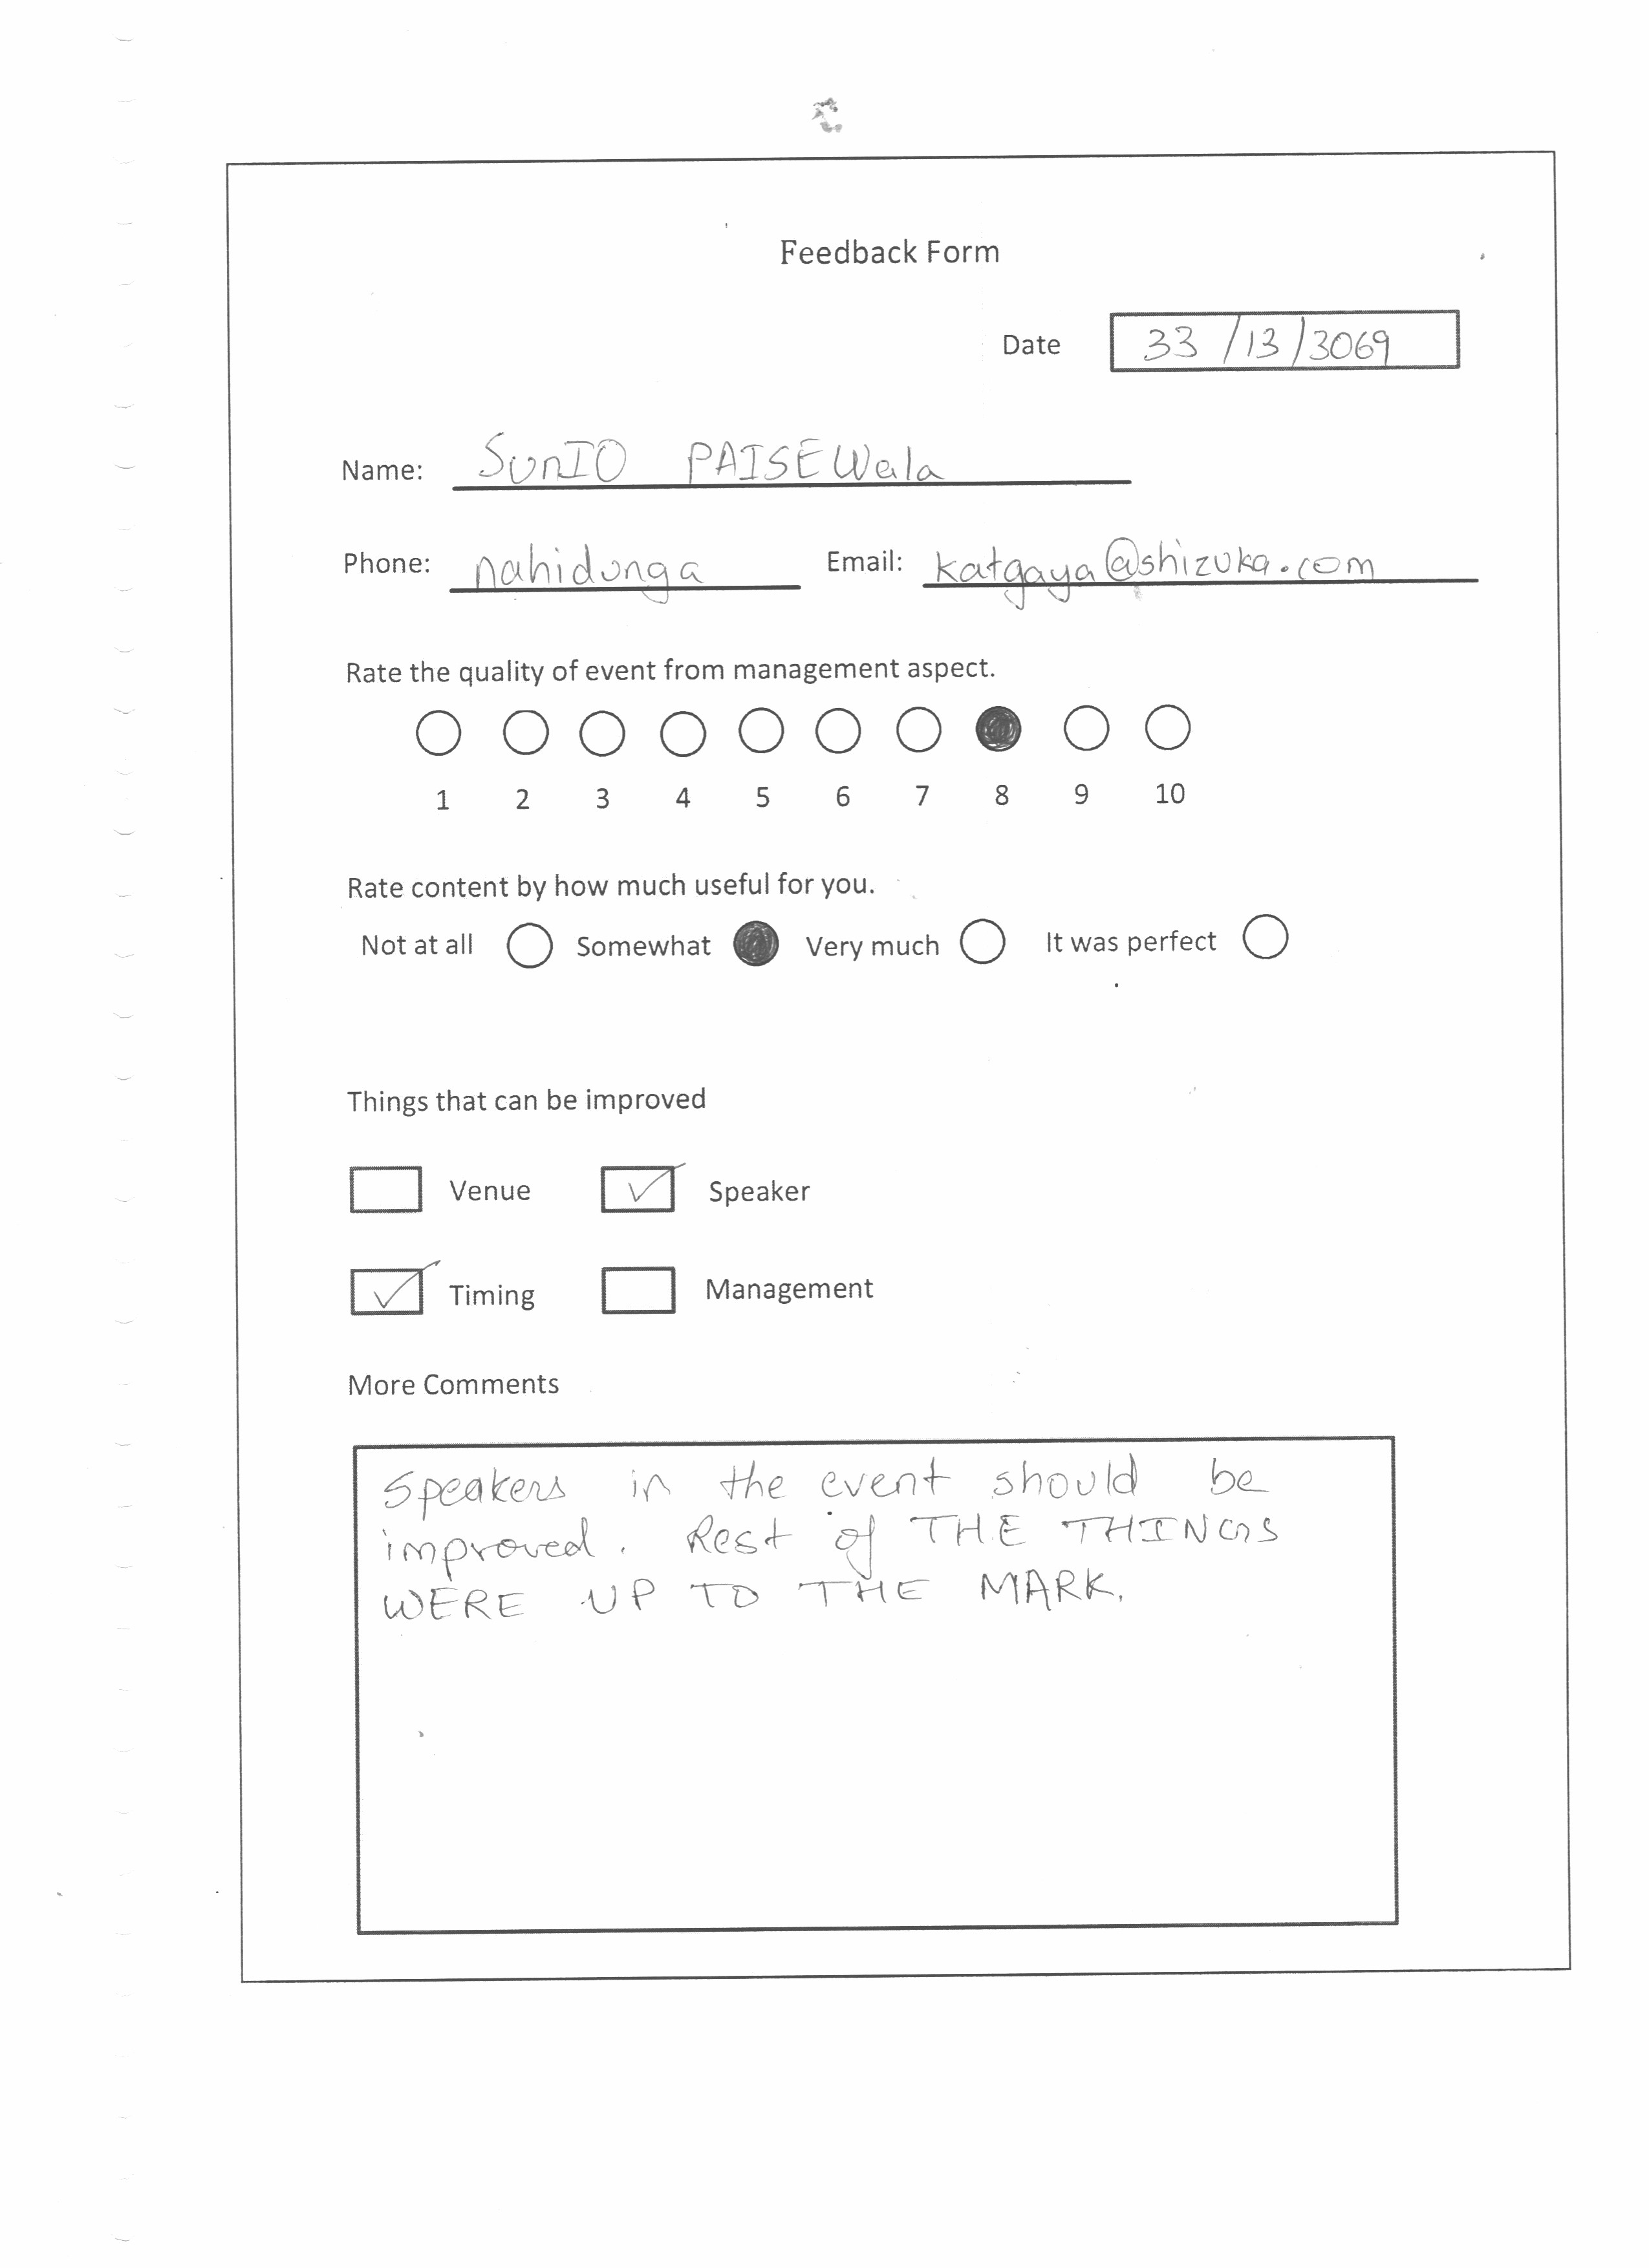 Feedback Form
Date 33/13/3069
Name: SunIO PAISEWala
Phone: nahidunga Email: katgaya@shizuka.com
Rate the quality of event from management aspect.
1 2 3 4 5 6 7 8 9 10
Rate content by how much useful for you.
Not at all Somewhat Very much It was perfect
Things that can be improved
Venue Speaker
Timing Management
More Comments
Speakers in the event should be
improved. Rest of THE THINGS
WERE UP TO THE MARK.